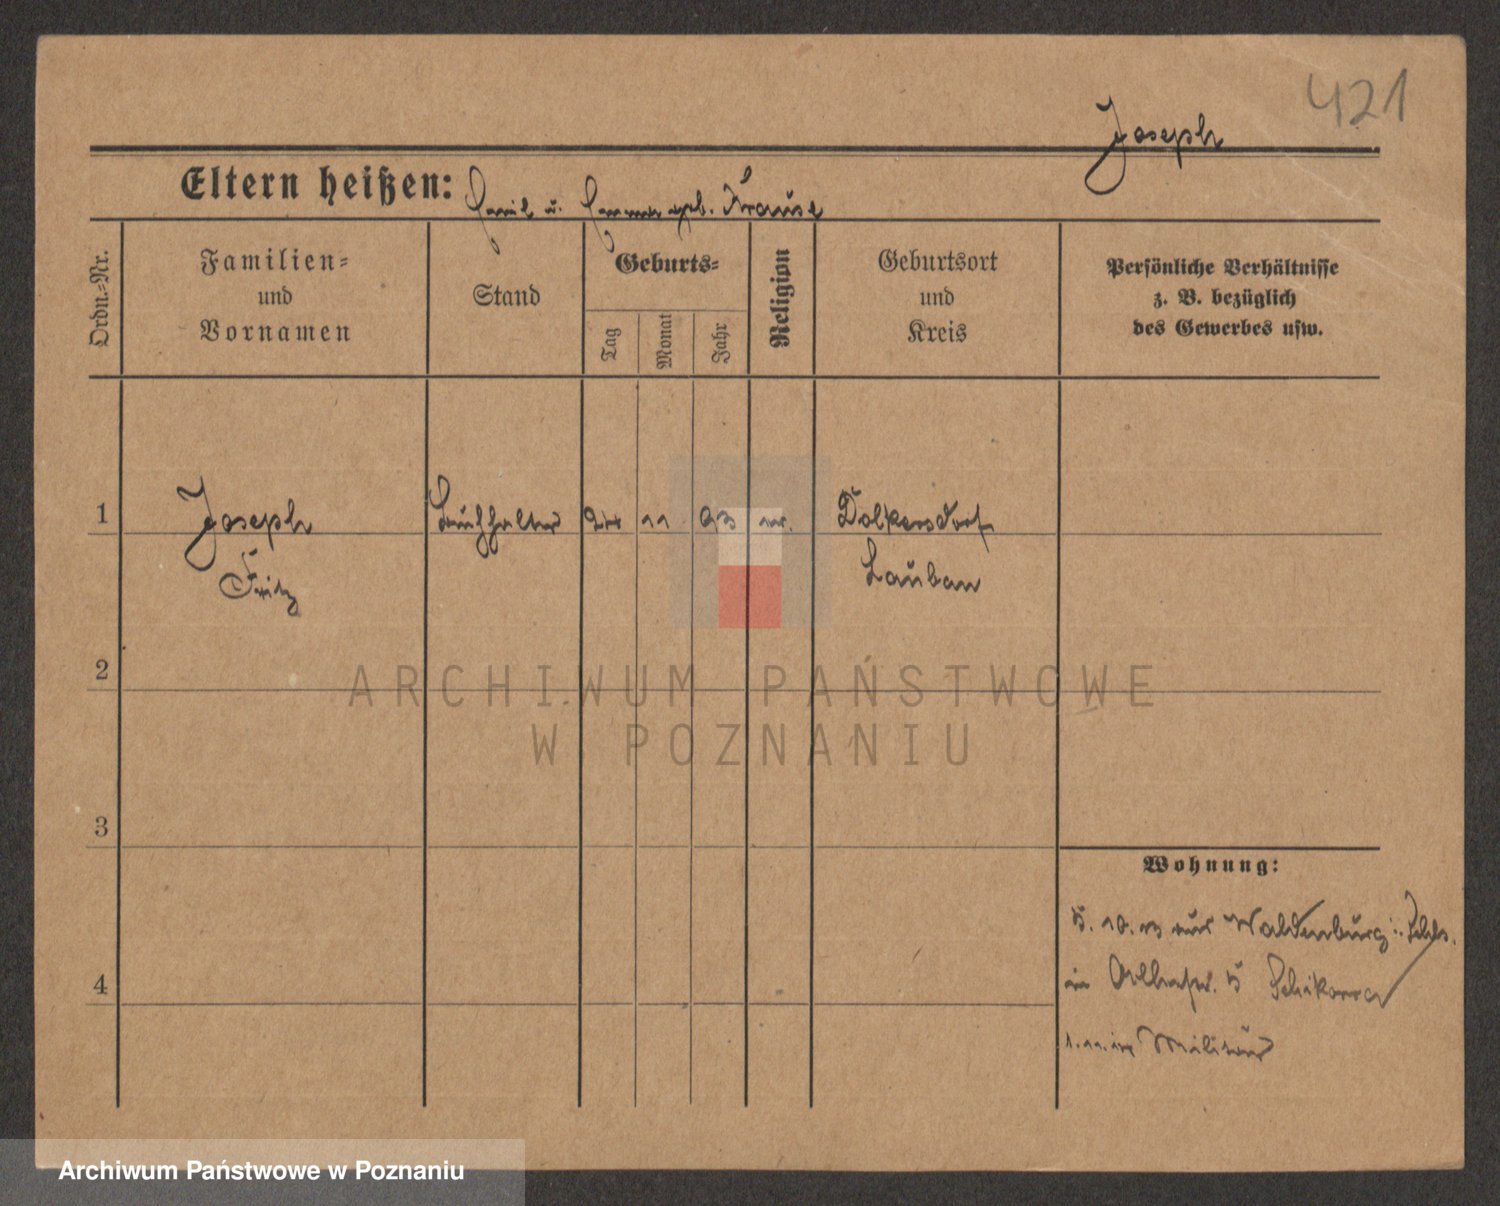 421
Joseph
Eltern heißen: Emil u. Emma geb. Krause
Ordn.=Nr.
Familien=
und
Vornamen
Stand
Geburts=
Tag
Monat
Jahr
Religion
Geburtsort
und
Kreis
Persönliche Verhältnisse
z. B. bezüglich
des Gewerbes usw.
1
Joseph
Fritz
Buchhalter
11
93
Lauban
2
ARCHIWUM PAŃSTWOWE
W POZNANIU
3
Wohnung:
10. 13 aus Waldenburg i. Schls.
4
in Schikorra
1. 11. Militär
Archiwum Państwowe w Poznaniu